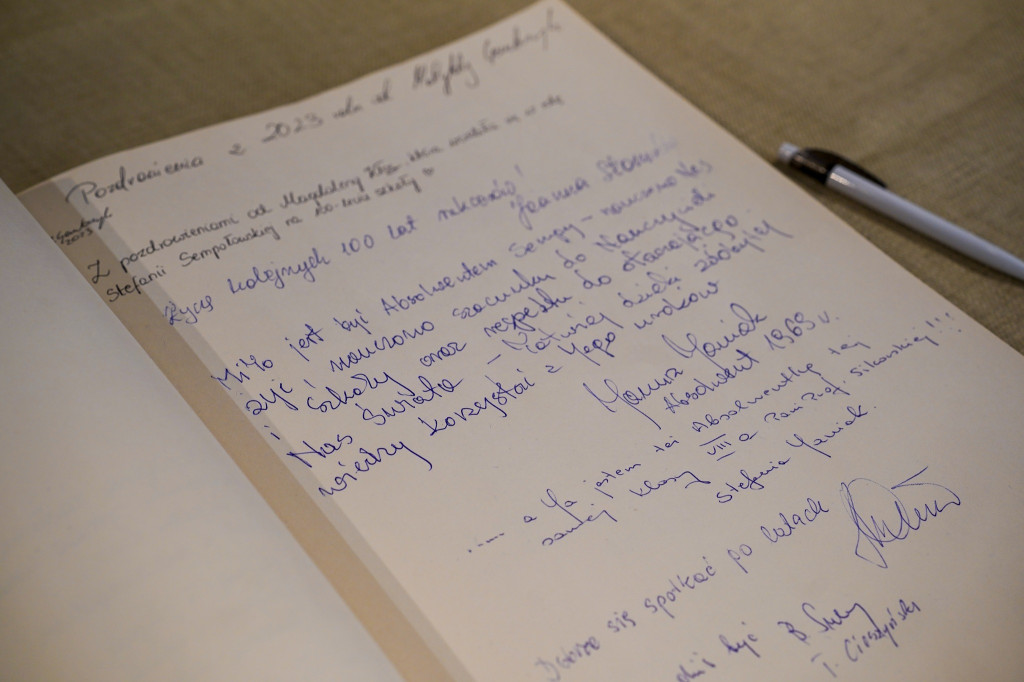 Pozdrowienia z 2023 roku od
2023
Z pozdrowieniami od Magdaleny która
Stefanii Sempołowskiej na 100-lecie szkoły
Życzę kolejnych 100 lat
Joanna
Miło jest być Absolwentem Sempy - nauczono Nas
żyć nauczono szacunku do Nauczycieli
i Szkoły oraz respektu do otaczającego
Nas Świata - łatwiej dzięki zdobytej
wiedzy korzystać z Jego uroków
Janusz Maniak
Absolwent 1969 r.
..... a Ja jestem też Absolwentką tej
samej Klasy VIII a Pani Prof. Sikorskiej!!!
Stefania Maniak.
Dobrze się spotkać po latach
być
B.
T. Cieszyński